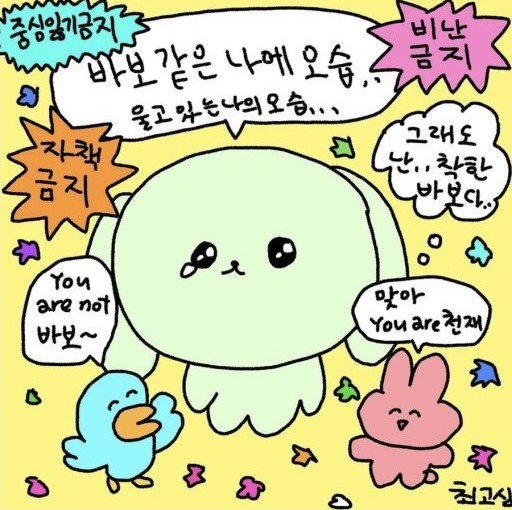 중심잃기금지
비난
금지
바보같은 나에 오습..
울고 있는나의 오습...
자책
금지
그래도
난.. 착한
바보다..
You
are not
바보~
맞아
You are 천재
최고심